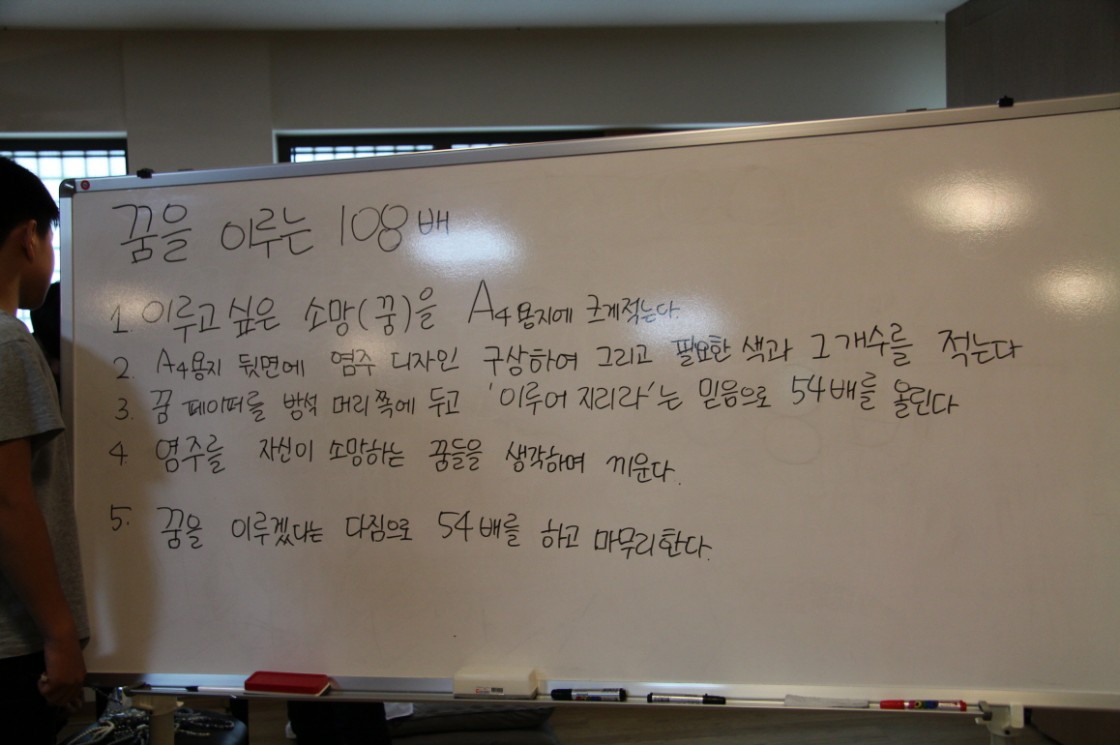 꿈을 이루는 108배
1. 이루고 싶은 소망(꿈)을 A4용지에 크게적는다.
2. A4용지 뒷면에 염주 디자인 구상하여 그리고 필요한 색과 그 개수를 적는다
3. 꿈 페이퍼를 방석 머리쪽에 두고 '이루어 지리라'는 믿음으로 54배를 올린다
4. 염주를 자신이 소망하는 꿈들을 생각하며 끼운다.
5. 꿈을 이루겠다는 다짐으로 54배를 하고 마무리한다.